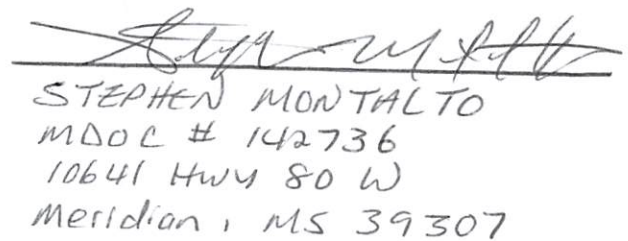 STEPHEN MONTALTO
MDOC # 142736
10641 HWY 80 W
Meridian, MS 39307